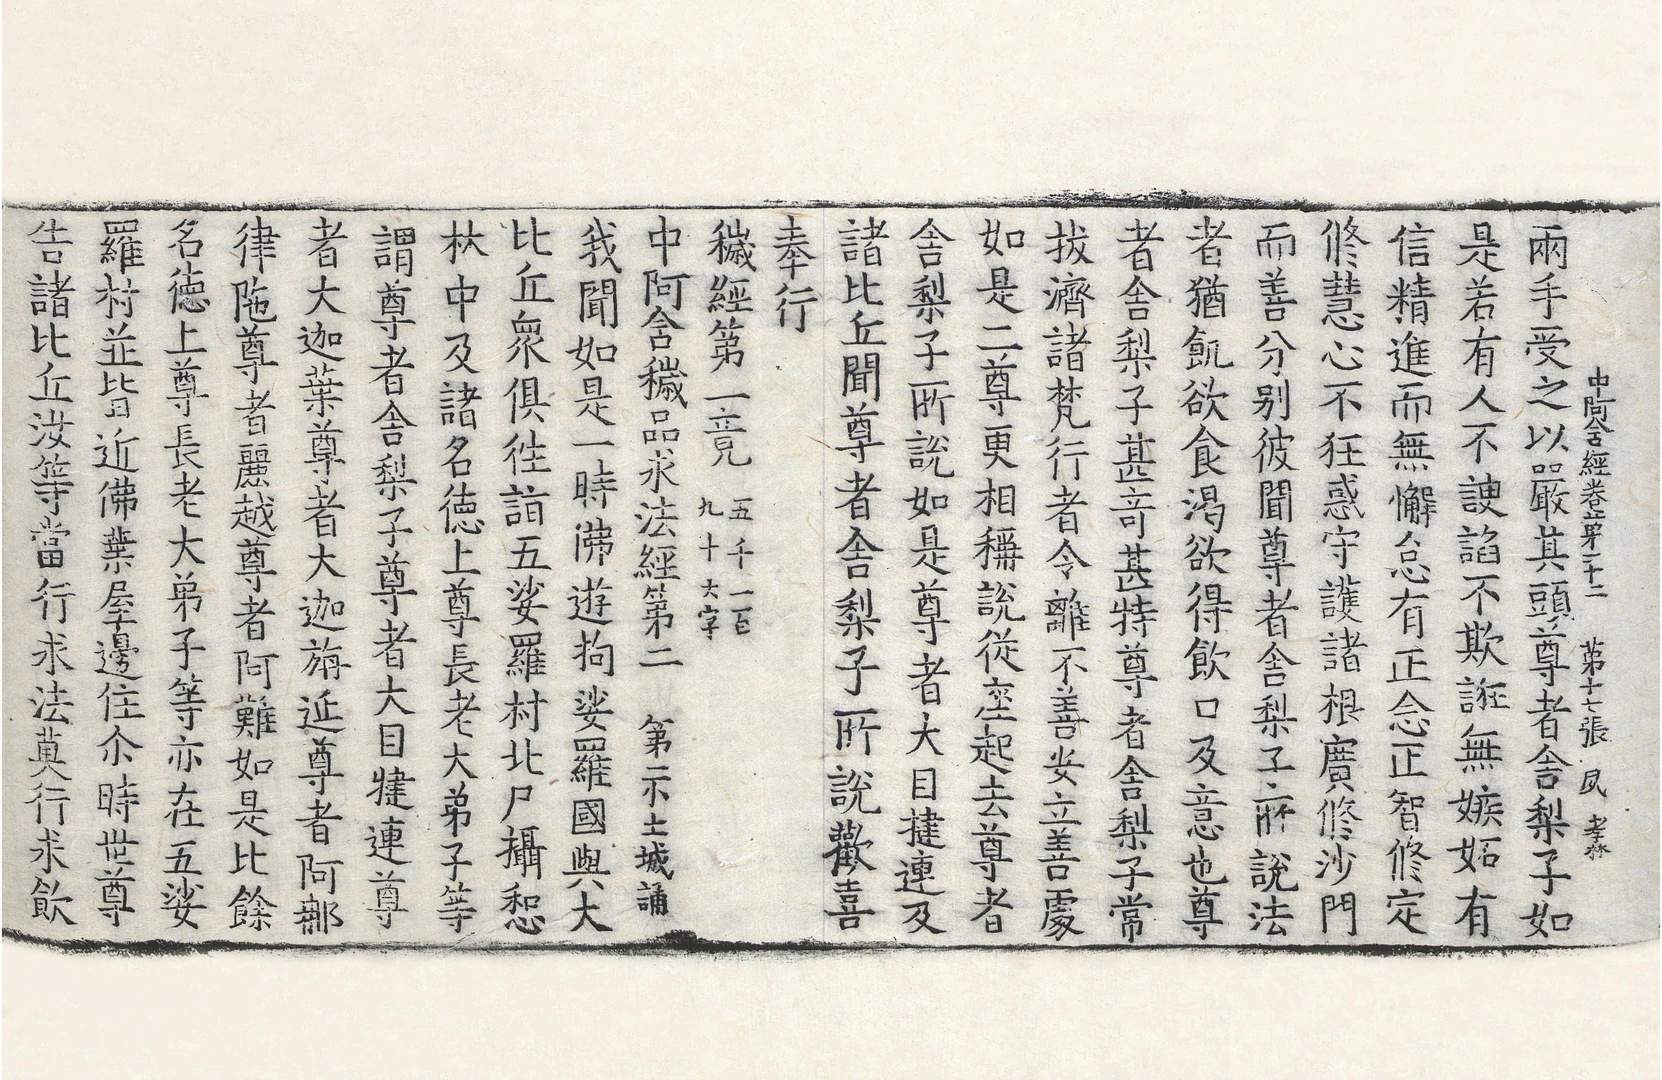 中阿含經卷苐二十二　苐十七張　夙　孝弥
兩手受之以嚴其頭尊者舍梨子如
是若有人不諛諂不欺誑無嫉妬有
信精進而無懈怠有正念正智修定
修慧心不狂惑守護諸根廣修沙門
而善分别彼聞尊者舍梨子所說法
者猶飢欲食渴欲得飮口及意也尊
者舍梨子甚竒甚特尊者舍梨子常
拔濟諸梵行者令離不善安立善處
如是二尊更相稱說從座起去尊者
舍梨子所說如是尊者大目揵連及
諸比丘聞尊者舍梨子所說歡喜
奉行
穢經第一竟　五千一百九十六字
中阿含穢品求法經第二　第二小土城誦
我聞如是一時佛遊拘娑羅國與大
比丘衆俱徃詣五娑羅村北尸攝惒
林中及諸名德上尊長老大弟子等
謂尊者舍梨子尊者大目揵連尊
者大迦葉尊者大迦旃延尊者阿那
律陁尊者麗越尊者阿難如是比餘
名德上尊長老大弟子等亦在五娑
羅村並皆近佛葉屋邊住尒時世尊
告諸比丘汝等當行求法莫行求飮